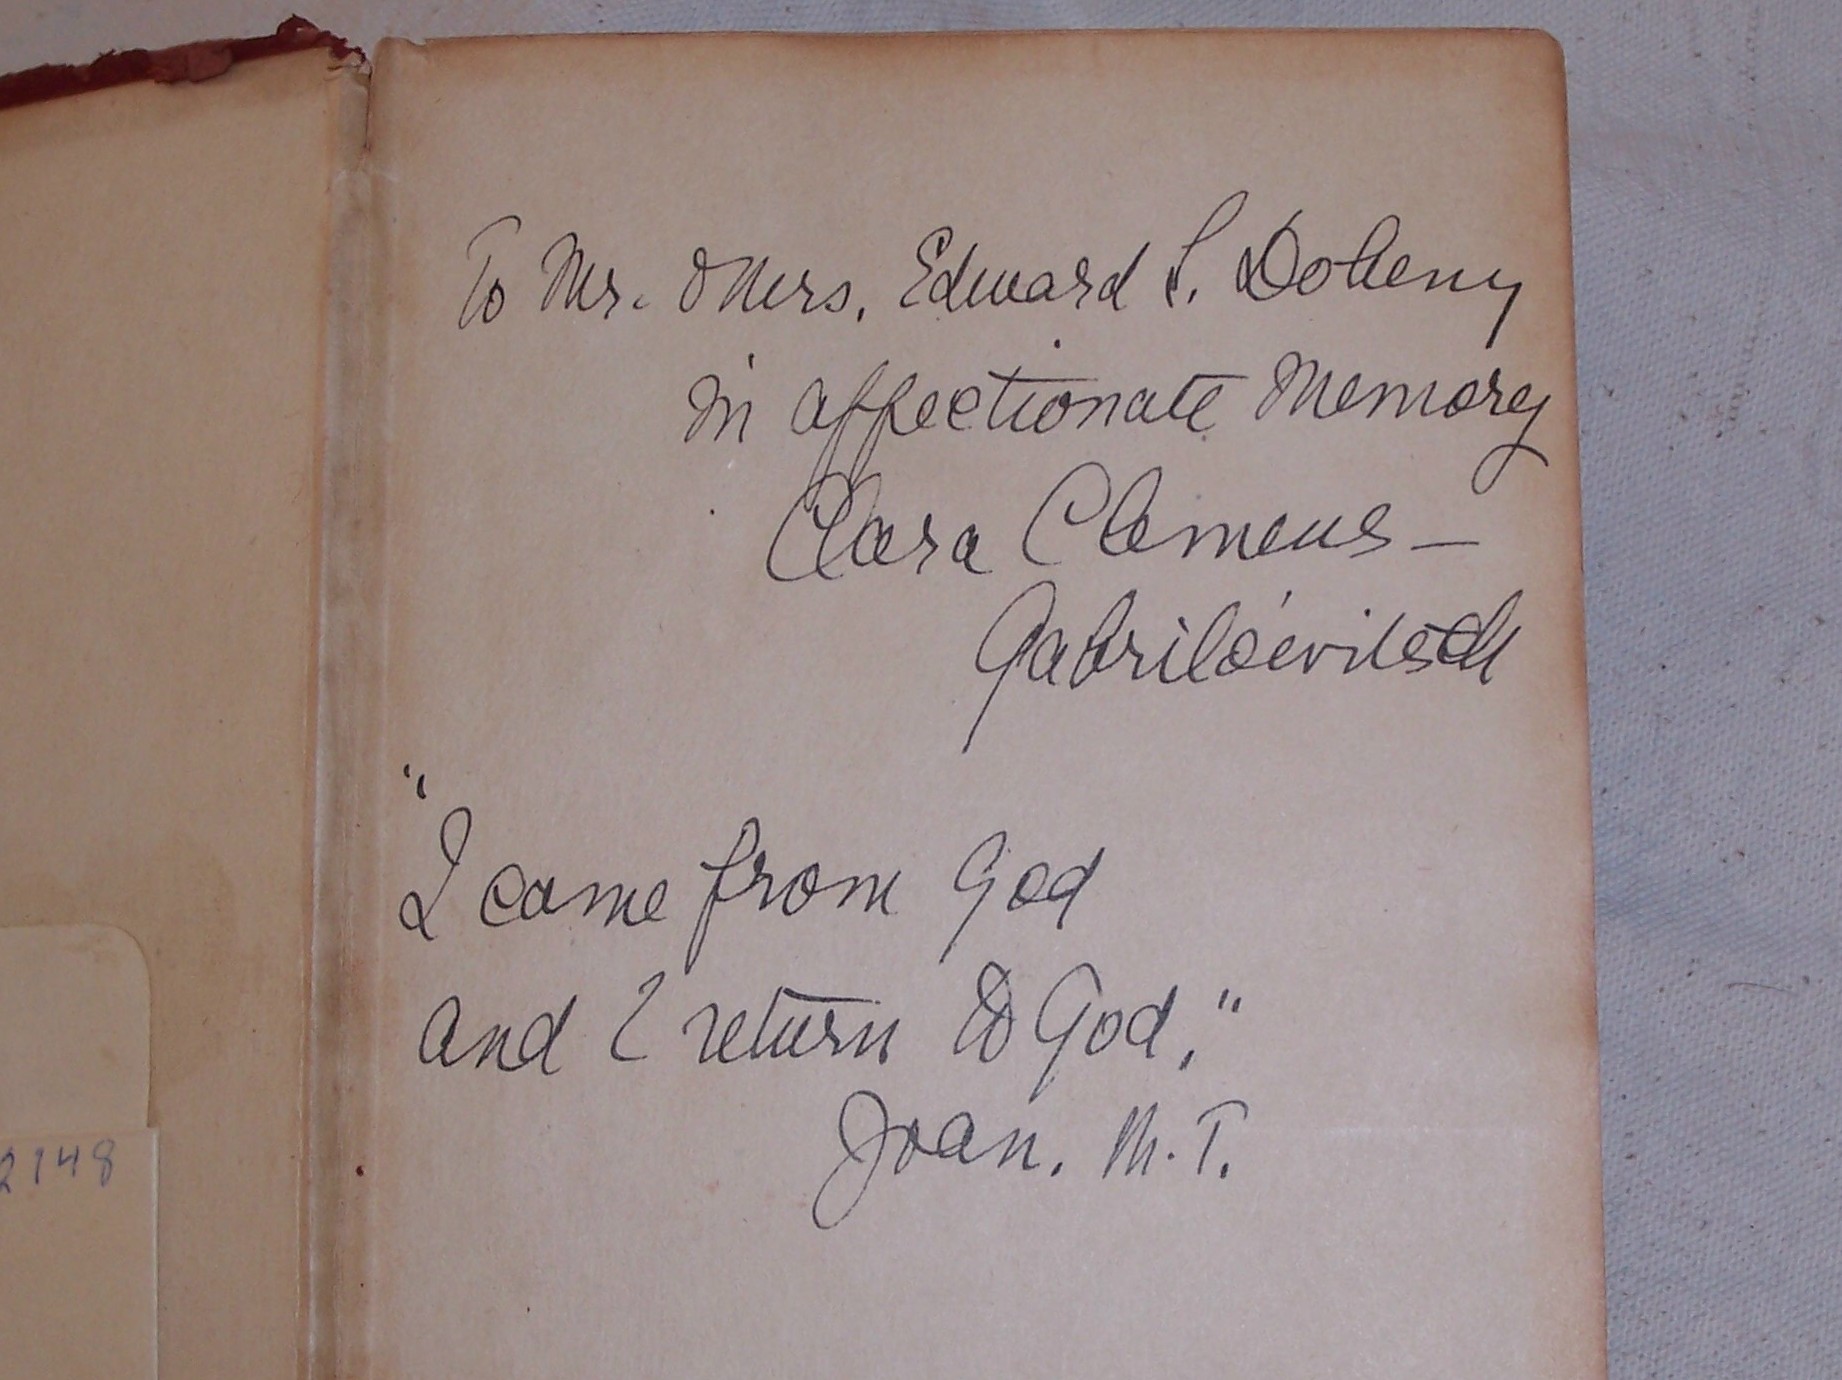 To Mr. & Mrs. Edward L. Doheny
in affectionate Memory
Clara Clemens —
Gabrilówitsch
"I came from God
and I return to God,"
Joan. M.T.
2148